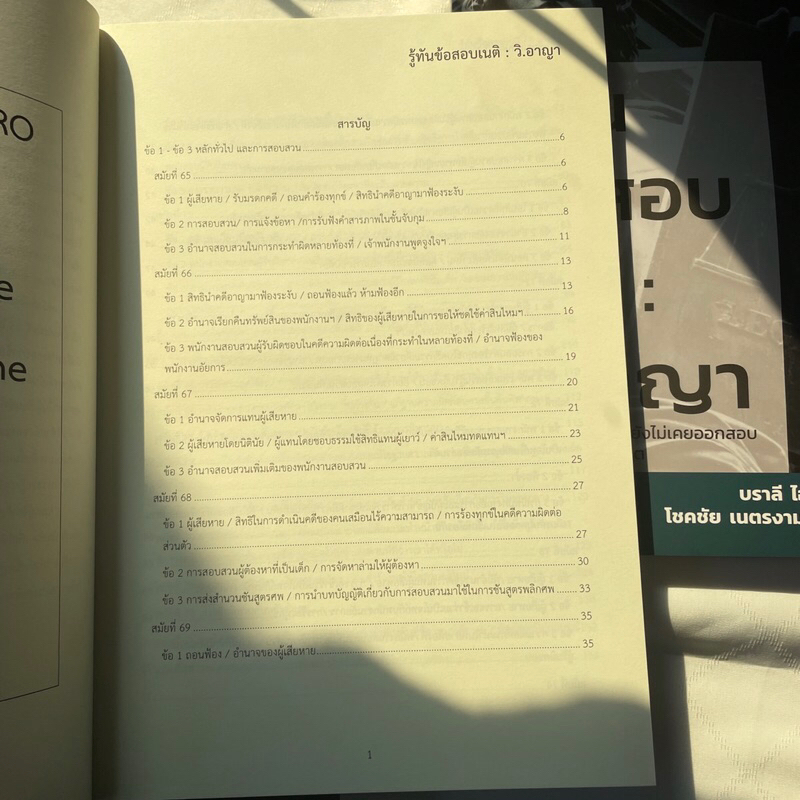 รู้ทันข้อสอบเนติ : วิ.อาญา
สารบัญ
ข้อ 1 - ข้อ 3 หลักทั่วไป และการสอบสวน 6
สมัยที่ 65 6
ข้อ 1 ผู้เสียหาย / รับมรดกคดี / ถอนคำร้องทุกข์ / สิทธินำคดีอาญามาฟ้องระงับ 6
ข้อ 2 การสอบสวน/ การแจ้งข้อหา /การรับฟังคำสารภาพในชั้นจับกุม 8
ข้อ 3 อำนาจสอบสวนในการกระทำผิดหลายท้องที่ / เจ้าพนักงานพูดจูงใจฯ 11
สมัยที่ 66 13
ข้อ 1 สิทธินำคดีอาญามาฟ้องระงับ / ถอนฟ้องแล้ว ห้ามฟ้องอีก 13
ข้อ 2 อำนาจเรียกคืนทรัพย์สินของพนักงานฯ / สิทธิของผู้เสียหายในการขอให้ชดใช้ค่าสินไหมฯ 16
ข้อ 3 พนักงานสอบสวนผู้รับผิดชอบในคดีความผิดต่อเนื่องที่กระทำในหลายท้องที่ / อำนาจฟ้องของ
พนักงานอัยการ 19
สมัยที่ 67 20
ข้อ 1 อำนาจจัดการแทนผู้เสียหาย 21
ข้อ 2 ผู้เสียหายโดยนิตินัย / ผู้แทนโดยชอบธรรมใช้สิทธิแทนผู้เยาว์ / ค่าสินไหมทดแทนฯ 23
ข้อ 3 อำนาจสอบสวนเพิ่มเติมของพนักงานสอบสวน 25
สมัยที่ 68 27
ข้อ 1 ผู้เสียหาย / สิทธิในการดำเนินคดีของคนเสมือนไร้ความสามารถ / การร้องทุกข์ในคดีความผิดต่อ
ส่วนตัว 27
ข้อ 2 การสอบสวนผู้ต้องหาที่เป็นเด็ก / การจัดหาล่ามให้ผู้ต้องหา 30
ข้อ 3 การส่งสำนวนชันสูตรศพ / การนำบทบัญญัติเกี่ยวกับการสอบสวนมาใช้ในการชันสูตรพลิกศพ 33
สมัยที่ 69 35
ข้อ 1 ถอนฟ้อง / อำนาจของผู้เสียหาย 35
1
RO
e
ne
สอบ
:
ญา
ยังไม่เคยออกสอบ
บราลี
โชคชัย เนตรงาม